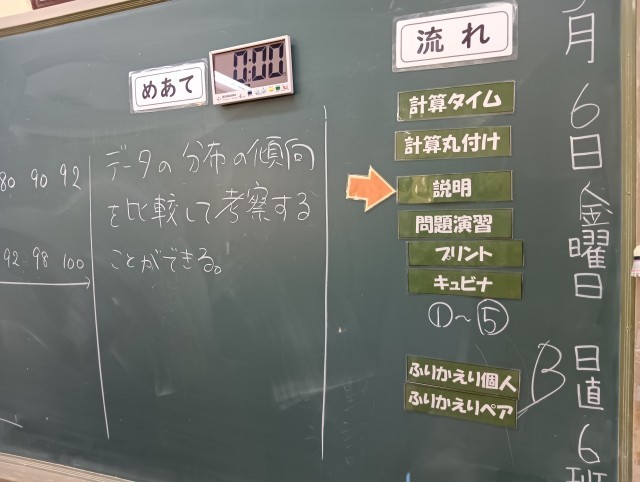 めあて
0:00
80 90 92
92 98 100
データの分布の傾向
を比較して考察する
ことができる。
流れ
計算タイム
計算丸付け
説明
問題演習
プリント
キュビナ
①～⑤
ふりかえり個人
ふりかえりペア
B
月6日金曜日
日直6班